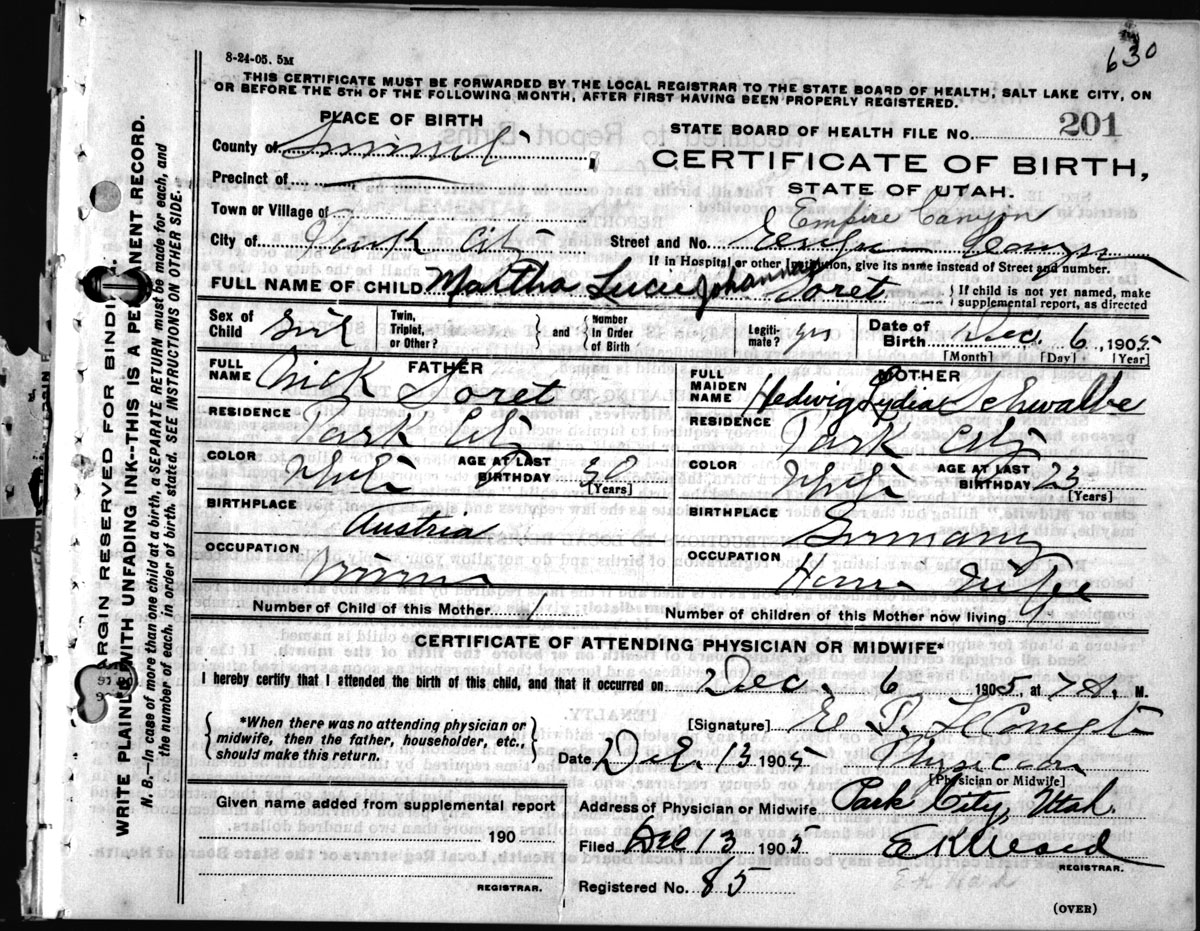 630
8-24-05. 5M
THIS CERTIFICATE MUST BE FORWARDED BY THE LOCAL REGISTRAR TO THE STATE BOARD OF HEALTH, SALT LAKE CITY, ON
OR BEFORE THE 5TH OF THE FOLLOWING MONTH, AFTER FIRST HAVING BEEN PROPERLY REGISTERED.
PLACE OF BIRTH
STATE BOARD OF HEALTH FILE No. 201
County of Summit
CERTIFICATE OF BIRTH,
Precinct of
STATE OF UTAH.
Town or Village of
Empire Canyon
City of Park City Street and No. Empire Canyon
If in Hospital or other Institution, give its name instead of Street and number.
FULL NAME OF CHILD Martha Lucie Johanna Soret
If child is not yet named, make supplemental report, as directed
Sex of Child Girl Twin, Triplet, or Other? and Number in Order of Birth Legitimate? yes Date of Birth Dec. 6, 1905
[Month] [Day] [Year]
FATHER
FULL NAME Nick Soret
RESIDENCE Park City
COLOR White AGE AT LAST BIRTHDAY 30
[Years]
BIRTHPLACE Austria
OCCUPATION Miner
MOTHER
FULL MAIDEN NAME Hedwig Lydia Schwalbe
RESIDENCE Park City
COLOR White AGE AT LAST BIRTHDAY 23
[Years]
BIRTHPLACE Germany
OCCUPATION House Wife
Number of Child of this Mother 1 Number of children of this Mother now living 1
CERTIFICATE OF ATTENDING PHYSICIAN OR MIDWIFE*
I hereby certify that I attended the birth of this child, and that it occurred on Dec. 6 1905, at 7 A. M.
*When there was no attending physician or
midwife, then the father, householder, etc.,
should make this return.
[Signature] E. P. LeCompte
Date Dec. 13 1905 Physician
[Physician or Midwife]
Given name added from supplemental report
190
REGISTRAR.
Address of Physician or Midwife Park City, Utah.
Filed Dec 13 1905
REGISTRAR.
Registered No. 85
(OVER)
MARGIN RESERVED FOR BINDING.
WRITE PLAINLY WITH UNFADING INK--THIS IS A PERMENENT RECORD.
N. B.—In case of more than one child at a birth, a SEPARATE RETURN must be made for each, and
the number of each, in order of birth, stated. SEE INSTRUCTIONS ON OTHER SIDE.